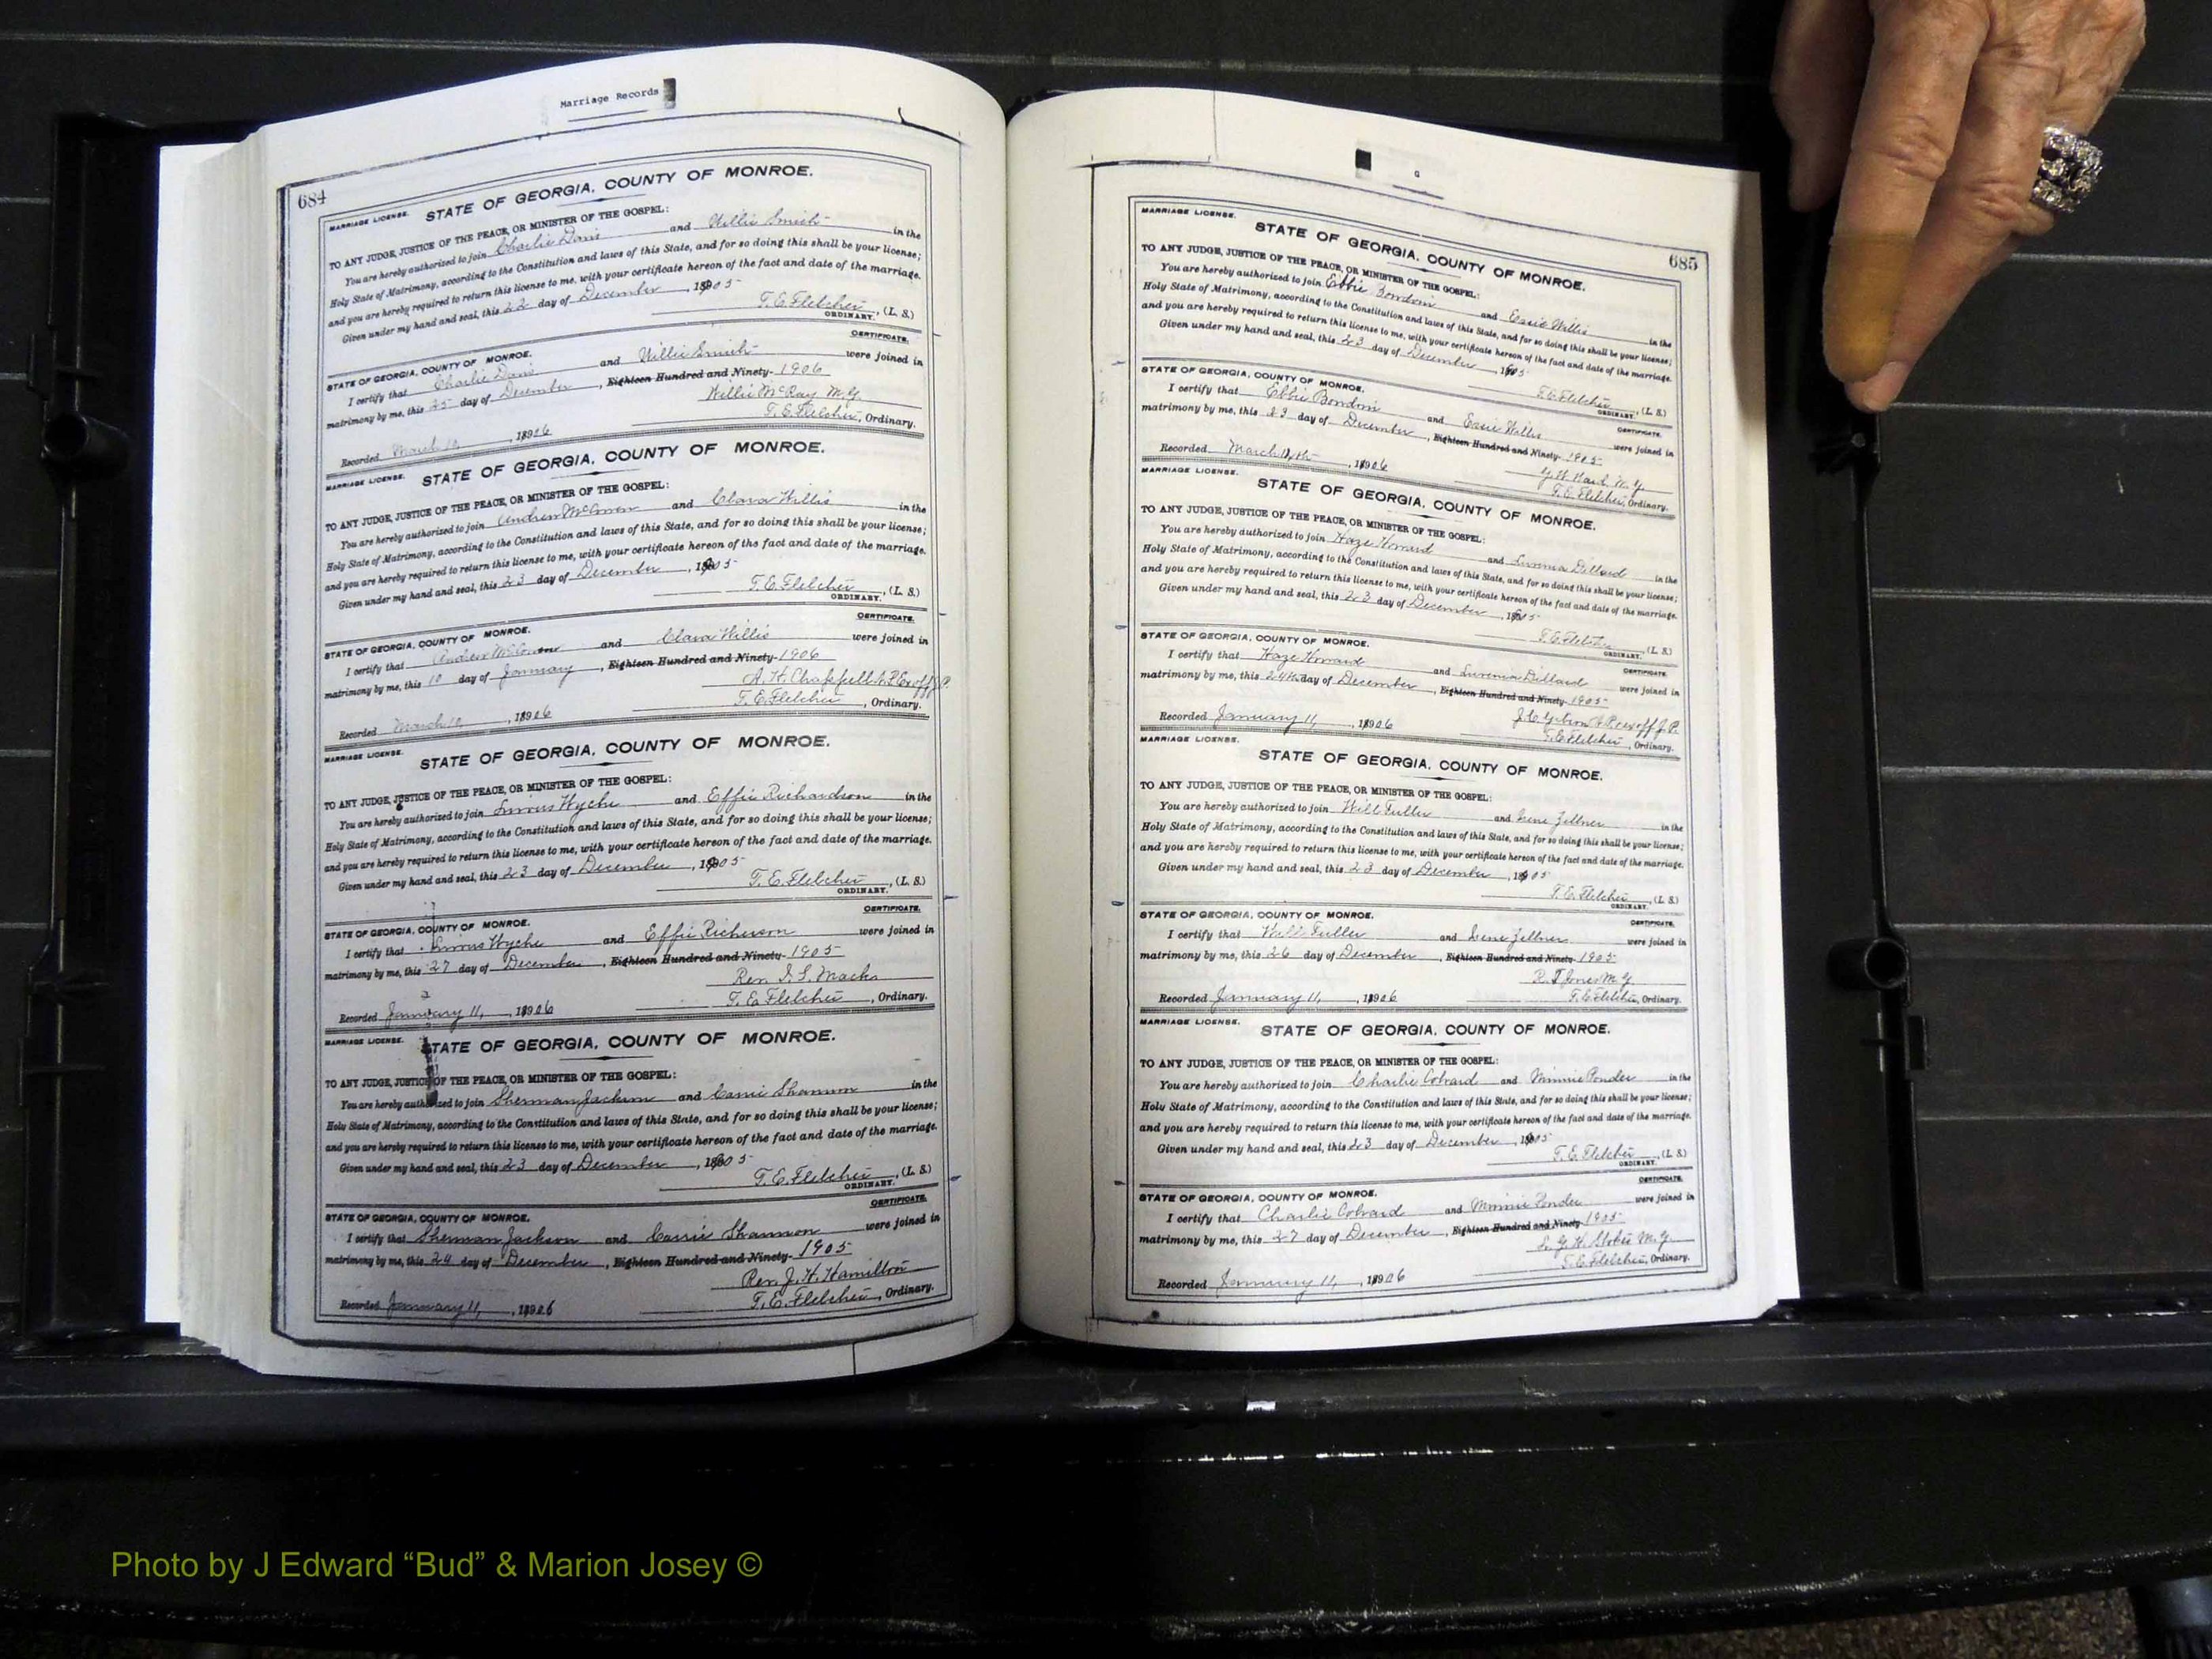 Marriage Records
684
MARRIAGE LICENSE. STATE OF GEORGIA, COUNTY OF MONROE.
TO ANY JUDGE, JUSTICE OF THE PEACE, OR MINISTER OF THE GOSPEL:
You are hereby authorized to join Charlie Davis and Willie Smith in the
Holy State of Matrimony, according to the Constitution and laws of this State, and for so doing this shall be your license;
and you are hereby required to return this license to me, with your certificate hereon of the fact and date of the marriage.
Given under my hand and seal, this 22 day of December, 1905
T. E. Fletcher, (L. S.)
ORDINARY.
CERTIFICATE.
STATE OF GEORGIA, COUNTY OF MONROE.
I certify that Charlie Davis and Willie Smith were joined in
matrimony by me, this 25 day of December, Eighteen Hundred and Ninety- 1906
Willie McRay M.G.
Recorded March 10, 1906 T. E. Fletcher, Ordinary.
MARRIAGE LICENSE. STATE OF GEORGIA, COUNTY OF MONROE.
TO ANY JUDGE, JUSTICE OF THE PEACE, OR MINISTER OF THE GOSPEL:
You are hereby authorized to join Andrew and Clara Willis in the
Holy State of Matrimony, according to the Constitution and laws of this State, and for so doing this shall be your license;
and you are hereby required to return this license to me, with your certificate hereon of the fact and date of the marriage.
Given under my hand and seal, this 23 day of December, 1905
T. E. Fletcher, (L. S.)
ORDINARY.
CERTIFICATE.
STATE OF GEORGIA, COUNTY OF MONROE.
I certify that Andrew and Clara Willis were joined in
matrimony by me, this 10 day of January, Eighteen Hundred and Ninety- 1906
A. H. Chappell
Recorded March 10, 1906 T. E. Fletcher, Ordinary.
MARRIAGE LICENSE. STATE OF GEORGIA, COUNTY OF MONROE.
TO ANY JUDGE, JUSTICE OF THE PEACE, OR MINISTER OF THE GOSPEL:
You are hereby authorized to join Wyche and Effie Richardson in the
Holy State of Matrimony, according to the Constitution and laws of this State, and for so doing this shall be your license;
and you are hereby required to return this license to me, with your certificate hereon of the fact and date of the marriage.
Given under my hand and seal, this 23 day of December, 1905
T. E. Fletcher, (L. S.)
ORDINARY.
CERTIFICATE.
STATE OF GEORGIA, COUNTY OF MONROE.
I certify that Wyche and Effie Richerson were joined in
matrimony by me, this 27 day of December, Eighteen Hundred and Ninety- 1905
Rev. Macks
Recorded January 11, 1906 T. E. Fletcher, Ordinary.
MARRIAGE LICENSE. STATE OF GEORGIA, COUNTY OF MONROE.
TO ANY JUDGE, JUSTICE OF THE PEACE, OR MINISTER OF THE GOSPEL:
You are hereby authorized to join Sherman Jackson and Carrie Shannon in the
Holy State of Matrimony, according to the Constitution and laws of this State, and for so doing this shall be your license;
and you are hereby required to return this license to me, with your certificate hereon of the fact and date of the marriage.
Given under my hand and seal, this 23 day of December, 1905
T. E. Fletcher, (L. S.)
ORDINARY.
CERTIFICATE.
STATE OF GEORGIA, COUNTY OF MONROE.
I certify that Sherman Jackson and Carrie Shannon were joined in
matrimony by me, this 24 day of December, Eighteen Hundred and Ninety- 1905
Rev. J. H. Hamilton
Recorded January 11, 1906 T. E. Fletcher, Ordinary.
G
685
MARRIAGE LICENSE.
STATE OF GEORGIA, COUNTY OF MONROE.
TO ANY JUDGE, JUSTICE OF THE PEACE, OR MINISTER OF THE GOSPEL:
You are hereby authorized to join Ebbie Bowdoin and Essie Willis in the
Holy State of Matrimony, according to the Constitution and laws of this State, and for so doing this shall be your license;
and you are hereby required to return this license to me, with your certificate hereon of the fact and date of the marriage.
Given under my hand and seal, this 23 day of December, 1905
T. E. Fletcher, (L. S.)
ORDINARY.
CERTIFICATE.
STATE OF GEORGIA, COUNTY OF MONROE.
I certify that Ebbie Bowdoin and Essie Willis were joined in
matrimony by me, this 23 day of December, Eighteen Hundred and Ninety- 1905
M. G.
Recorded March, 1906 T. E. Fletcher, Ordinary.
MARRIAGE LICENSE.
STATE OF GEORGIA, COUNTY OF MONROE.
TO ANY JUDGE, JUSTICE OF THE PEACE, OR MINISTER OF THE GOSPEL:
You are hereby authorized to join Haze Howard and Luvenia Dillard in the
Holy State of Matrimony, according to the Constitution and laws of this State, and for so doing this shall be your license;
and you are hereby required to return this license to me, with your certificate hereon of the fact and date of the marriage.
Given under my hand and seal, this 23 day of December, 1905
T. E. Fletcher (L. S.)
ORDINARY.
CERTIFICATE.
STATE OF GEORGIA, COUNTY OF MONROE.
I certify that Haze Howard and Luvenia Dillard were joined in
matrimony by me, this 24th day of December, Eighteen Hundred and Ninety- 1905
Recorded January 11, 1906
T. E. Fletcher, Ordinary.
MARRIAGE LICENSE.
STATE OF GEORGIA, COUNTY OF MONROE.
TO ANY JUDGE, JUSTICE OF THE PEACE, OR MINISTER OF THE GOSPEL:
You are hereby authorized to join Will Fuller and Irene Zellner in the
Holy State of Matrimony, according to the Constitution and laws of this State, and for so doing this shall be your license;
and you are hereby required to return this license to me, with your certificate hereon of the fact and date of the marriage.
Given under my hand and seal, this 23 day of December, 1905
T. E. Fletcher, (L. S.)
ORDINARY.
CERTIFICATE.
STATE OF GEORGIA, COUNTY OF MONROE.
I certify that Will Fuller and Irene Zellner were joined in
matrimony by me, this 26 day of December, Eighteen Hundred and Ninety- 1905
Jones M.G.
Recorded January 11, 1906 T. E. Fletcher, Ordinary.
MARRIAGE LICENSE.
STATE OF GEORGIA, COUNTY OF MONROE.
TO ANY JUDGE, JUSTICE OF THE PEACE, OR MINISTER OF THE GOSPEL:
You are hereby authorized to join Charlie Colvard and Minnie Ponder in the
Holy State of Matrimony, according to the Constitution and laws of this State, and for so doing this shall be your license;
and you are hereby required to return this license to me, with your certificate hereon of the fact and date of the marriage.
Given under my hand and seal, this 23 day of December, 1905
T. E. Fletcher, (L. S.)
ORDINARY.
CERTIFICATE.
STATE OF GEORGIA, COUNTY OF MONROE.
I certify that Charlie Colvard and Minnie Ponder were joined in
matrimony by me, this 27 day of December, Eighteen Hundred and Ninety- 1905
Stokes M.G.
T. E. Fletcher, Ordinary.
Recorded January 11, 1906
Photo by J Edward “Bud” & Marion Josey ©